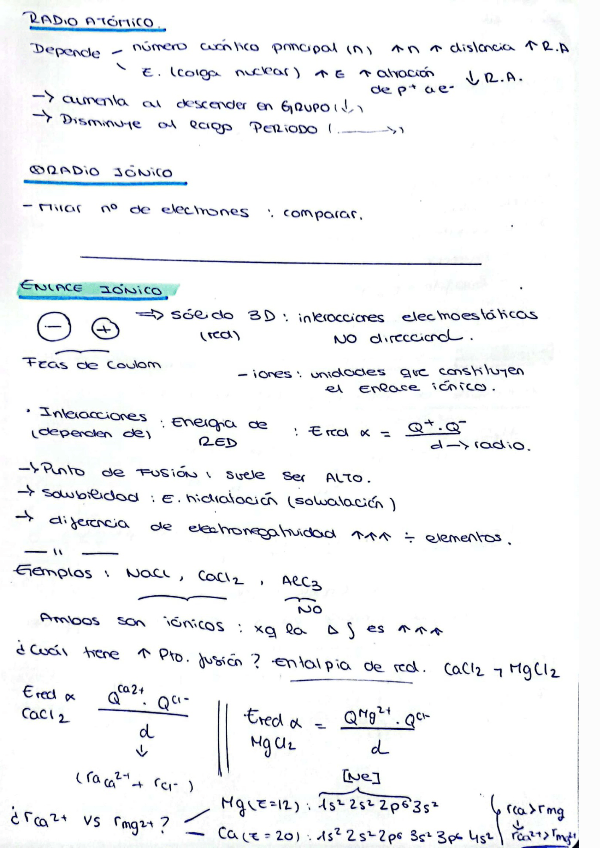 RADIO ATÓMICO.
Depende - número cuántico principal (n) ↑n ↑ distancia ↑ R.A
Z. (carga nuclear) ↑ Z ↑ atracción ↓ R.A.
de p+ a e-
→ aumenta al descender en GRUPO (↓)
→ Disminuye al PERIODO (→)
RADIO IÓNICO
- Mirar nº de electrones : comparar.
ENLACE IÓNICO
- + ⇒ sólido 3D : interacciones electroestáticas
(red) NO direccional.
Fzas de Coulom
- iones : unidades que constituyen
el enlace iónico.
· Interacciones : Energia de : Ered α = Q+ . Q-
(dependen de) RED d → radio.
→ Punto de FUSIÓN : suele ser ALTO.
→ Solubilidad : E. hidratación (solvatación)
→ diferencia de electronegatividad ↑↑↑ ÷ elementos.
— " —
Ejemplos : NaCl , CaCl2 , AlCl3
NO
Ambos son iónicos : xq la Δ es ↑↑↑
¿Cuál tiene ↑ Pto. fusión? entalpia de red. CaCl2 y MgCl2
Ered α Q Ca2+ . Q Cl-
CaCl2 d
↓
(r Ca2+ + r Cl-)
Ered α = Q Mg2+ . Q Cl-
MgCl2 d
[Ne]
¿rCa2+ vs rMg2+?
Mg (Z=12) : 1s2 2s2 2p6 3s2
Ca (Z=20) : 1s2 2s2 2p6 3s2 3p6 4s2
rCa > rMg
↓
rCa2+ > rMg2+